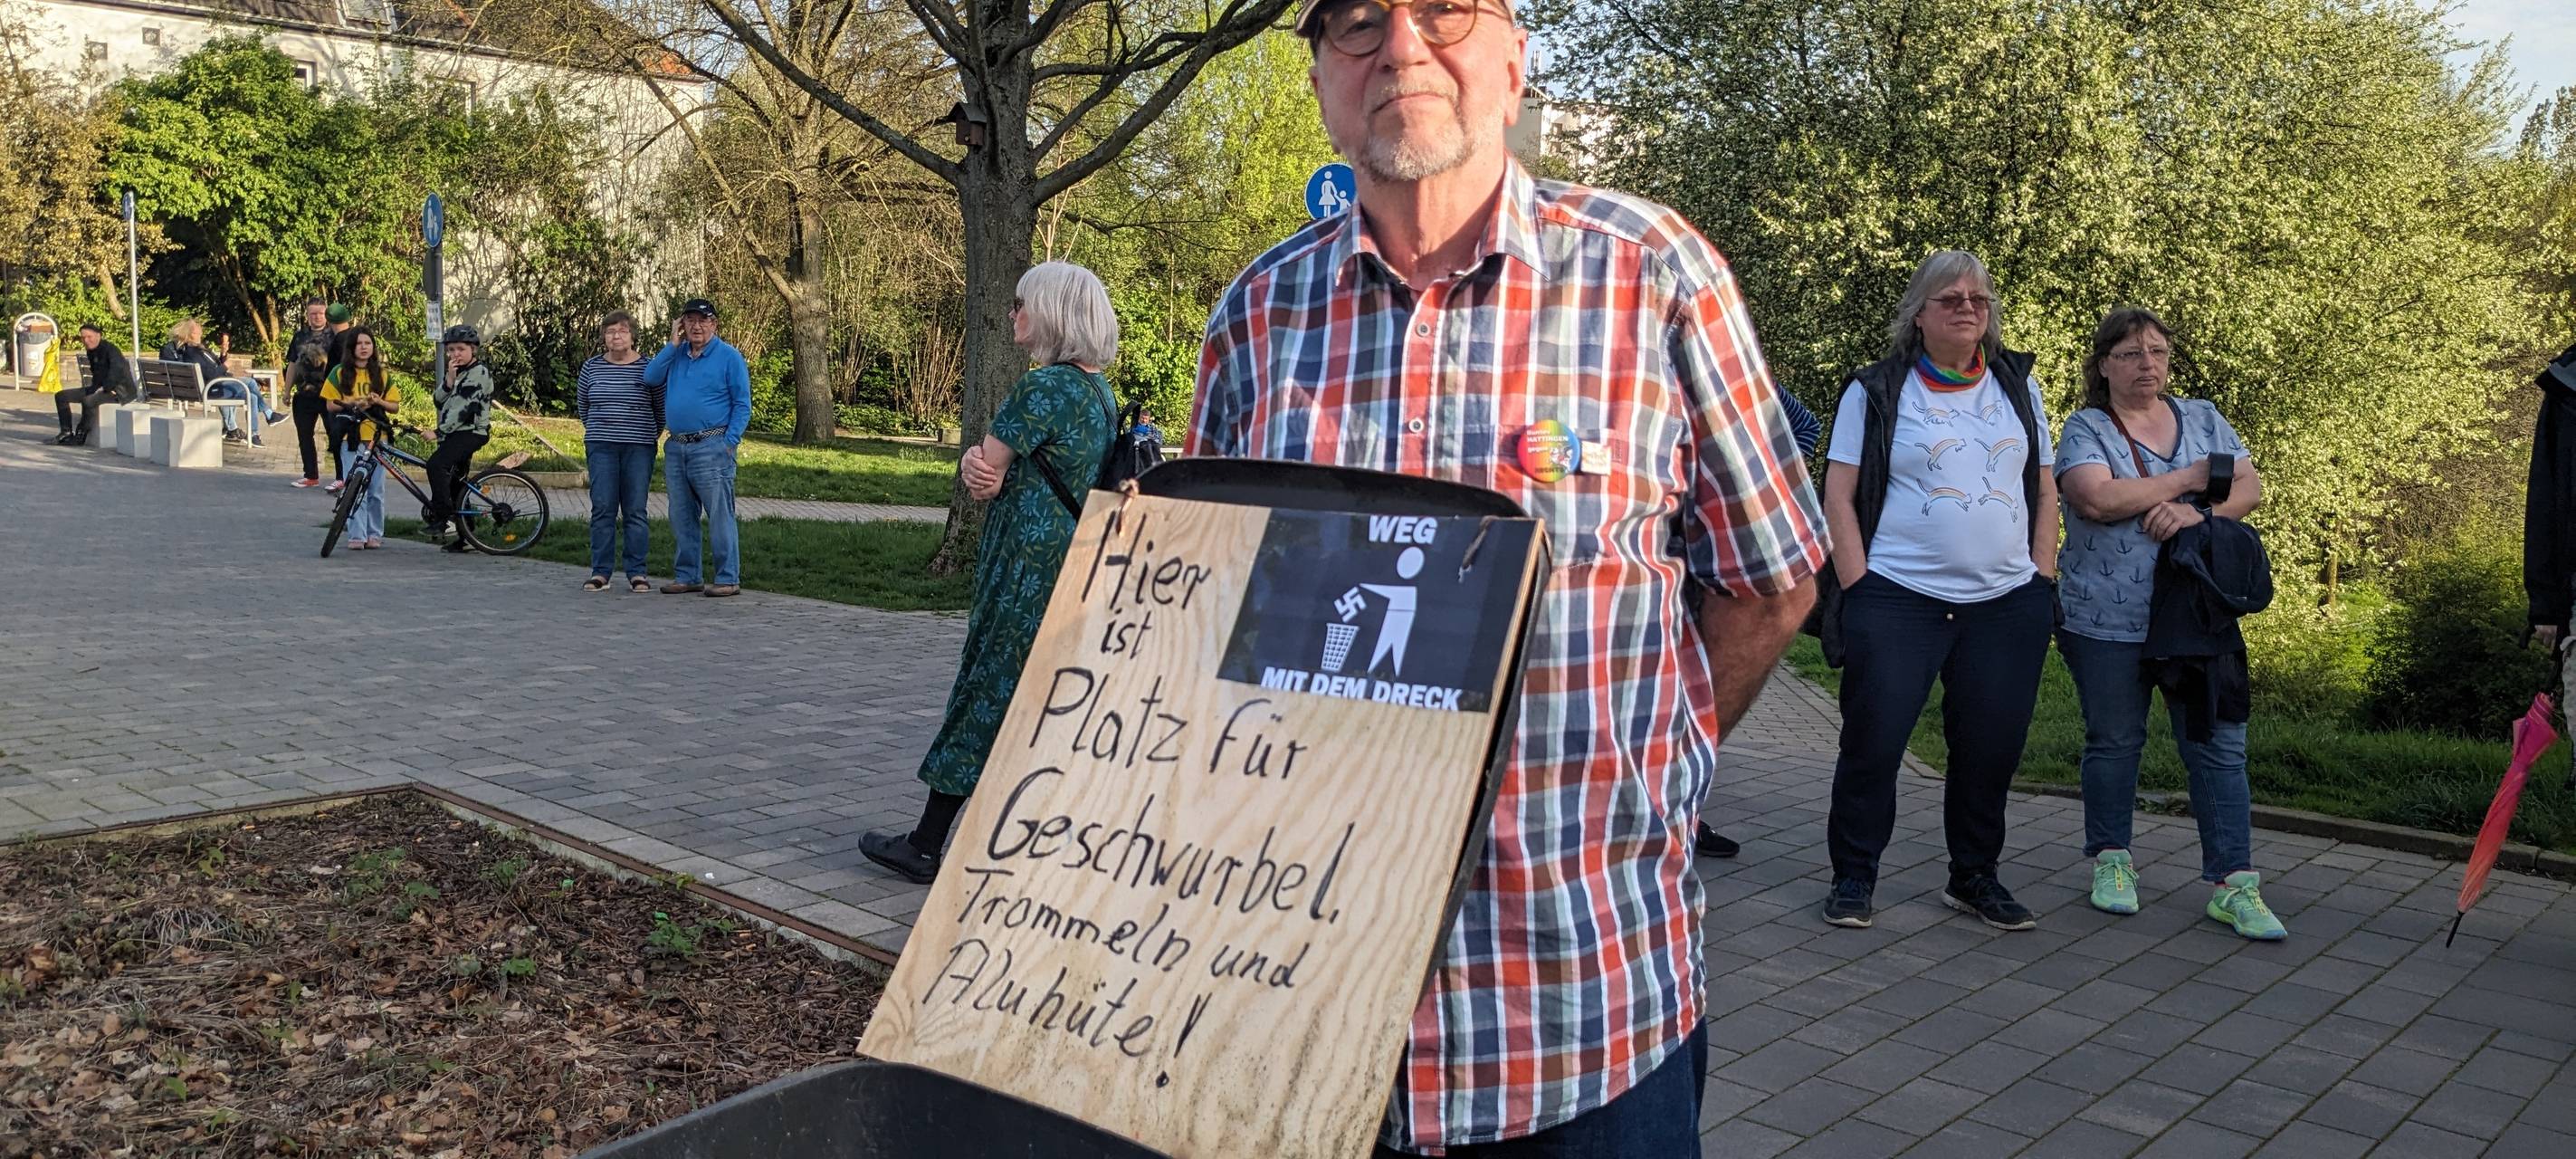 Hier
ist
Platz für
Geschwurbel,
Trommeln und
Aluhüte!
WEG
MIT DEM DRECK
HATTINGEN
gegen